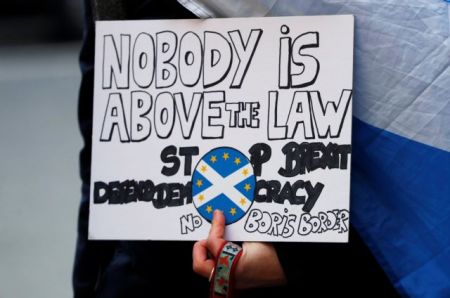 NOBODY iS
ABOVE THE LAW
STOP BREXIT
DEFEND DEMOCRACY
NO BORIS BORDER